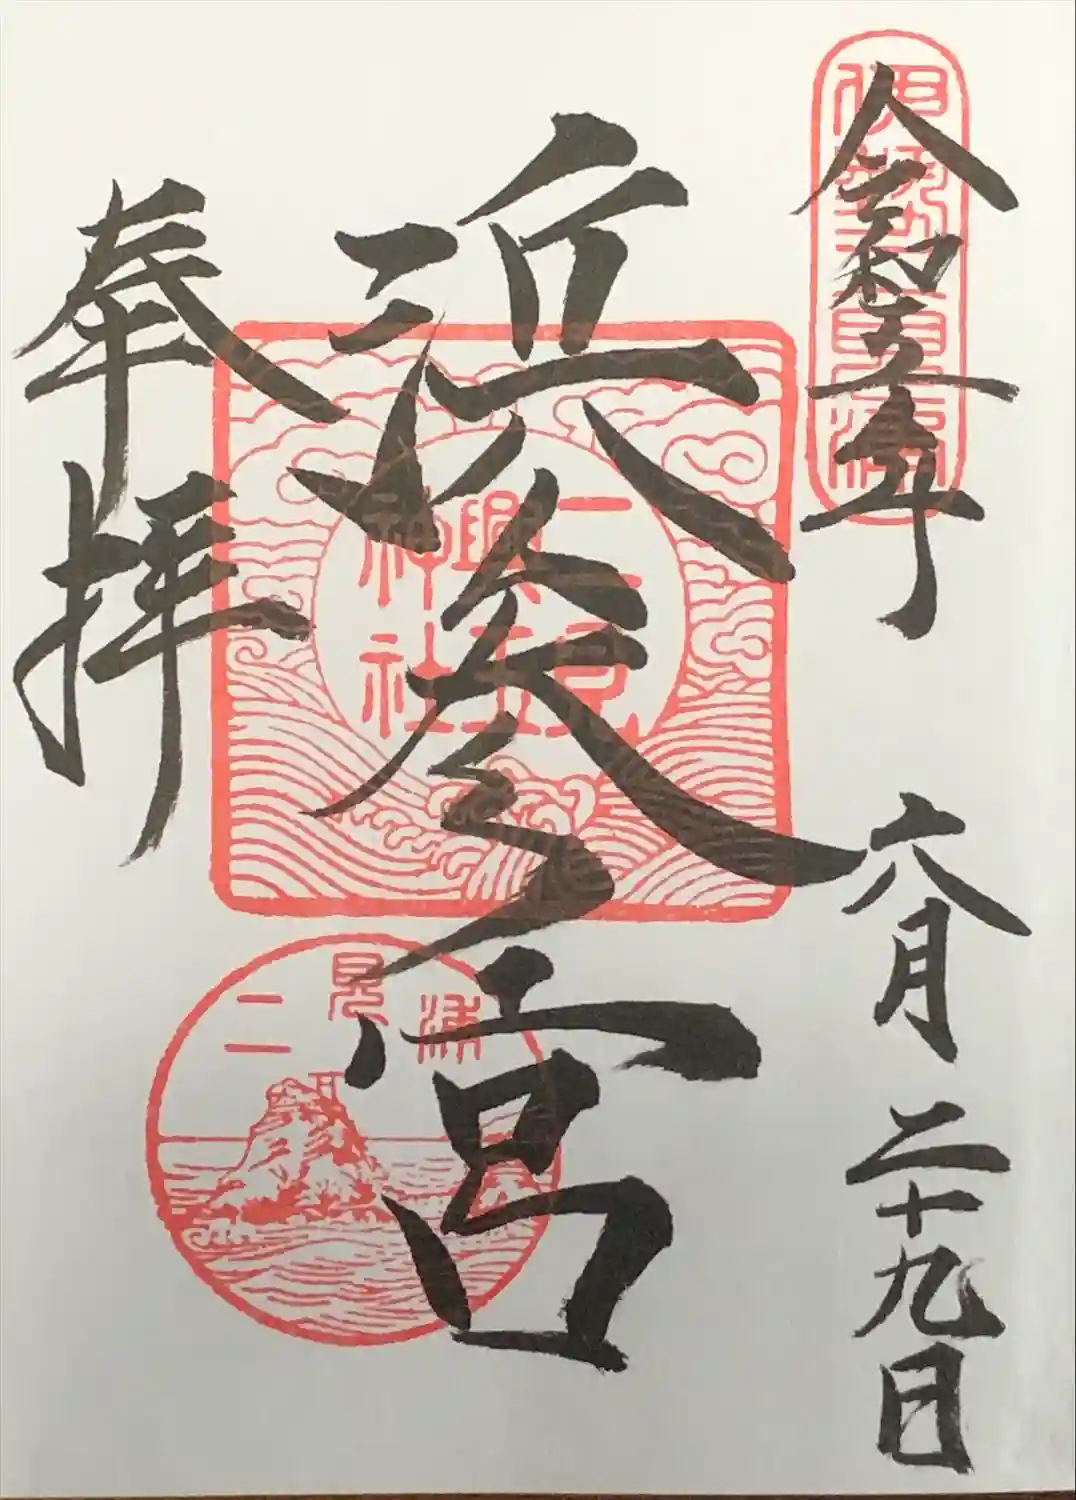 令和五年 六月 二十九日
伊勢二見浦
浜参宮
二見興玉神社
二見浦
奉拝